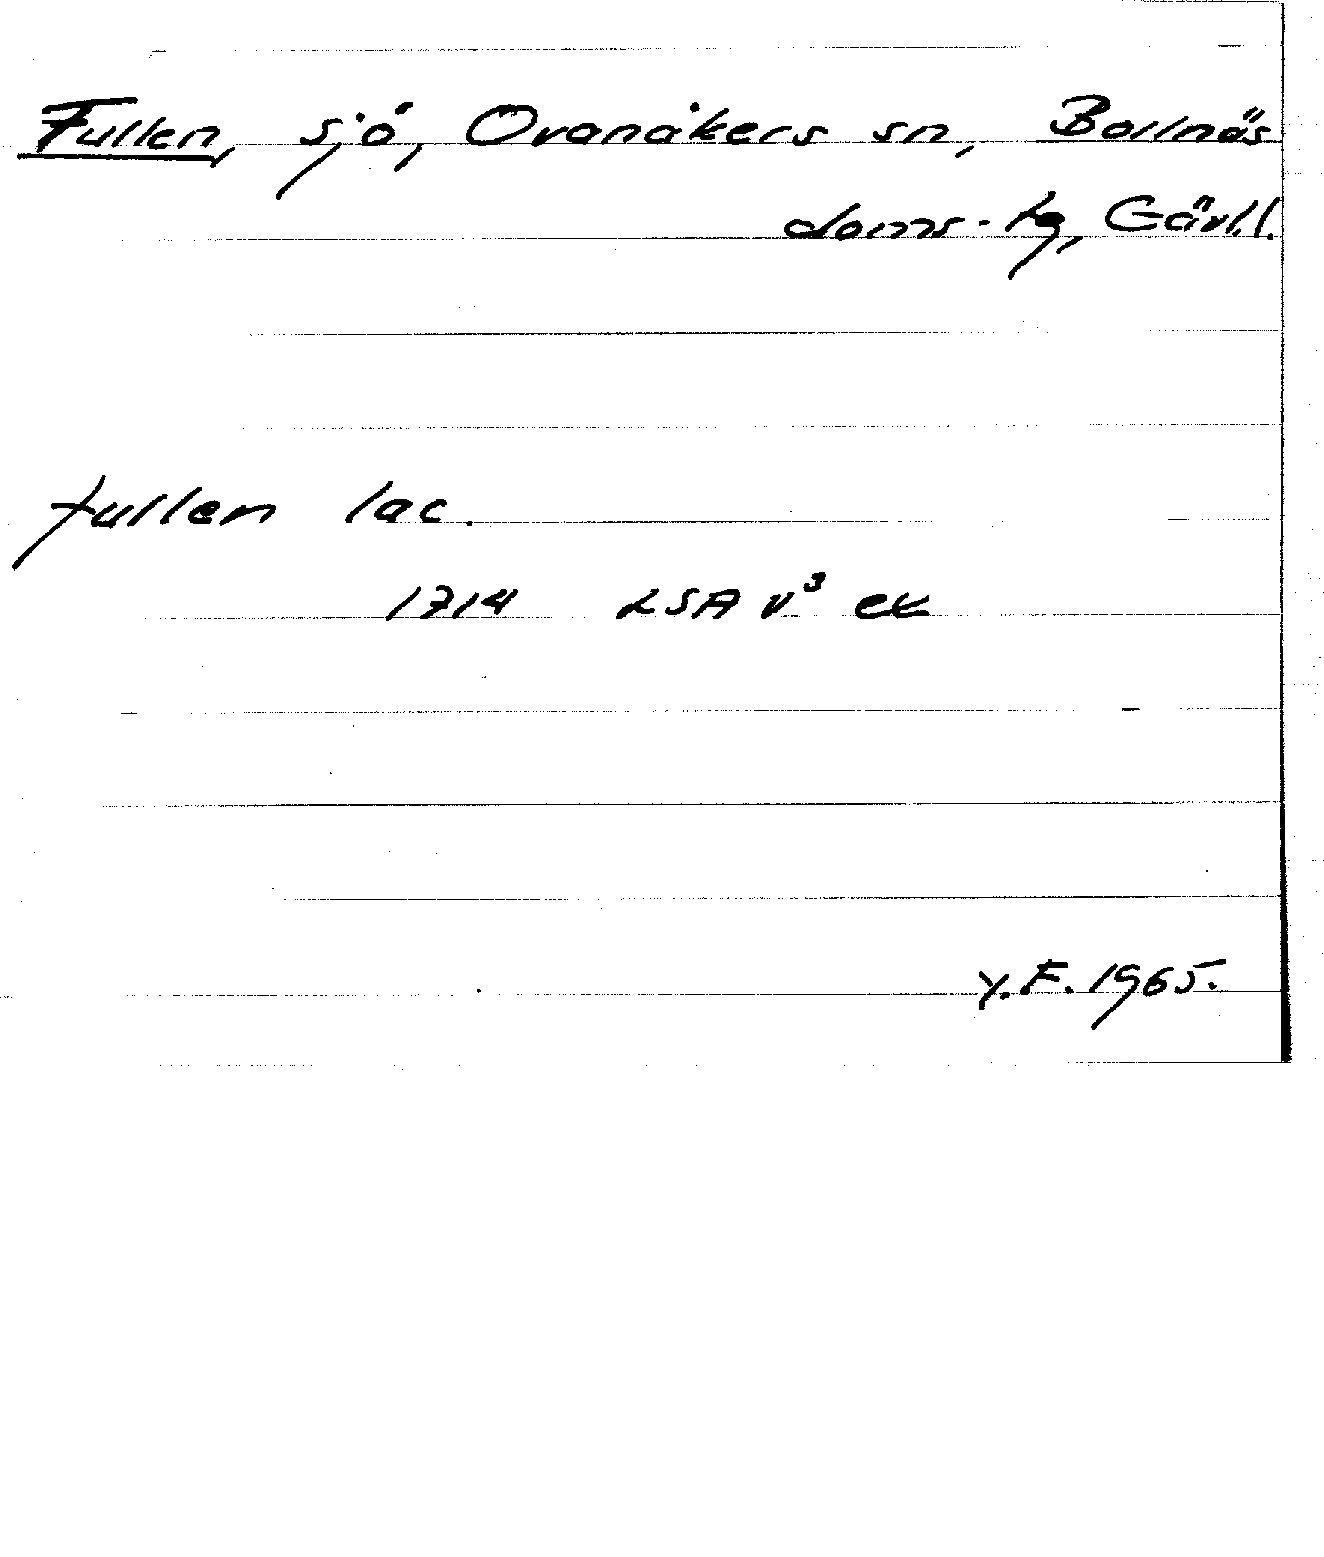 Fullen, sjö, Ovanåkers sn, Bollnäs
doms. tg, Gävl.l.
fullen lac.
1714 LSA v³ ex
Y.F. 1965.